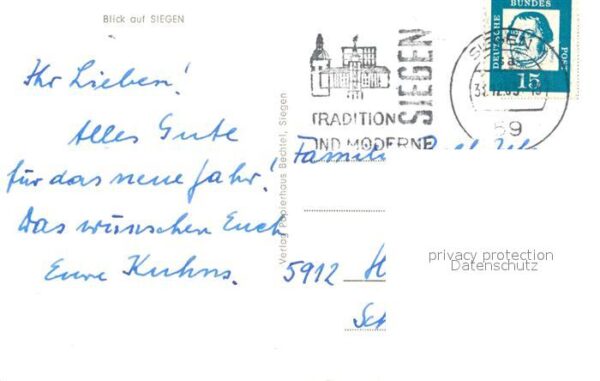 Blick auf SIEGEN
Ihr Lieben!
Alles Gute
für das neue Jahr!
Das wünschen Euch
Eure Kuhns.
Verlag Papierhaus Bechtel, Siegen
TRADITION
UND MODERNE
SIEGEN
SIEGEN
59
DEUTSCHE
BUNDES
POST
15
Famili
5912 H
Sch
privacy protection
Datenschutz